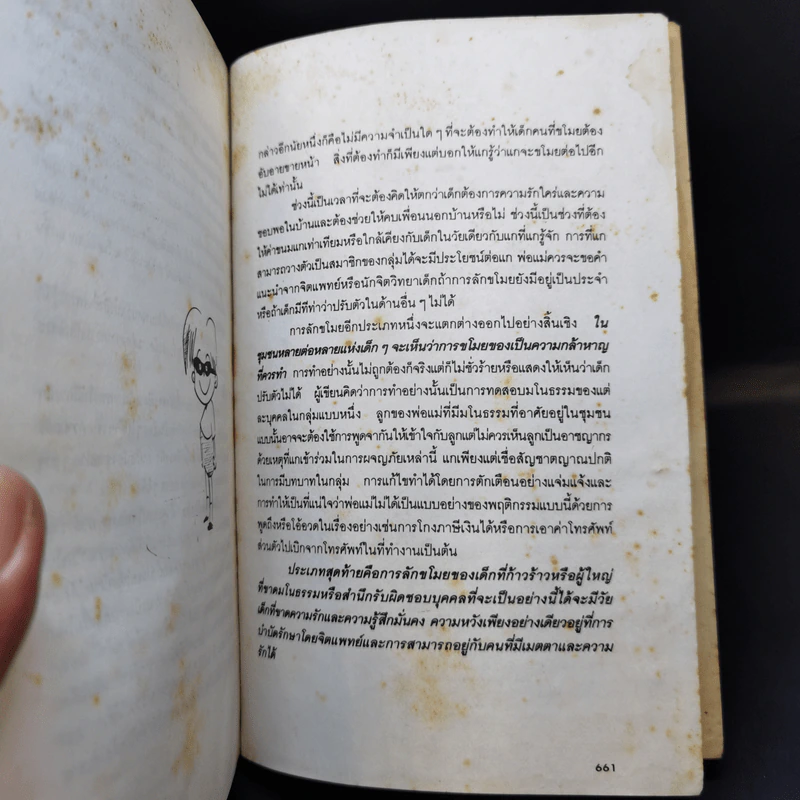 กล่าวอีกนัยหนึ่งก็คือไม่มีความจำเป็นใด ๆ ที่จะต้องทำให้เด็กคนที่ขโมยต้อง
อับอายขายหน้า สิ่งที่ต้องทำก็มีเพียงแต่บอกให้แกรู้ว่าแกจะขโมยต่อไปอีก
ไม่ได้เท่านั้น
ช่วงนี้เป็นเวลาที่จะต้องคิดให้ตกว่าเด็กต้องการความรักใคร่และความ
ชอบพอในบ้านและต้องช่วยให้คบเพื่อนนอกบ้านหรือไม่ ช่วงนี้เป็นช่วงที่ต้อง
ให้ค่าขนมแกเท่าเทียมหรือใกล้เคียงกับเด็กในวัยเดียวกับแกที่แกรู้จัก การที่แก
สามารถวางตัวเป็นสมาชิกของกลุ่มได้จะมีประโยชน์ต่อแก พ่อแม่ควรจะขอคำ
แนะนำจากจิตแพทย์หรือนักจิตวิทยาเด็กถ้าการลักขโมยยังมีอยู่เป็นประจำ
หรือถ้าเด็กมีทีท่าว่าปรับตัวในด้านอื่น ๆ ไม่ได้
การลักขโมยอีกประเภทหนึ่งจะแตกต่างออกไปอย่างสิ้นเชิง ใน
ชุมชนหลายต่อหลายแห่งเด็ก ๆ จะเห็นว่าการขโมยของเป็นความกล้าหาญ
ที่ควรทำ การทำอย่างนั้นไม่ถูกต้องก็จริงแต่ก็ไม่ชั่วร้ายหรือแสดงให้เห็นว่าเด็ก
ปรับตัวไม่ได้ ผู้เขียนคิดว่าการทำอย่างนั้นเป็นการทดสอบมโนธรรมของแต่
ละบุคคลในกลุ่มแบบหนึ่ง ลูกของพ่อแม่ที่มีมโนธรรมที่อาศัยอยู่ในชุมชน
แบบนั้นอาจจะต้องใช้การพูดจากันให้เข้าใจกับลูกแต่ไม่ควรเห็นลูกเป็นอาชญากร
ด้วยเหตุที่แกเข้าร่วมในการผจญภัยเหล่านี้ แกเพียงแต่เชื่อสัญชาตญาณปกติ
ในการมีบทบาทในกลุ่ม การแก้ไขทำได้โดยการตักเตือนอย่างแจ่มแจ้งและ
การทำให้เป็นที่แน่ใจว่าพ่อแม่ไม่ได้เป็นแบบอย่างของพฤติกรรมแบบนี้ด้วยการ
พูดถึงหรือโอ้อวดในเรื่องอย่างเช่นการโกงภาษีเงินได้หรือการเอาค่าโทรศัพท์
ส่วนตัวไปเบิกจากโทรศัพท์ในที่ทำงานเป็นต้น
ประเภทสุดท้ายคือการลักขโมยของเด็กที่ก้าวร้าวหรือผู้ใหญ่
ที่ขาดมโนธรรมหรือสำนึกรับผิดชอบบุคคลที่จะเป็นอย่างนี้ได้จะมีวัย
เด็กที่ขาดความรักและความรู้สึกมั่นคง ความหวังเพียงอย่างเดียวอยู่ที่การ
บำบัดรักษาโดยจิตแพทย์และการสามารถอยู่กับคนที่มีเมตตาและความ
รักได้
661